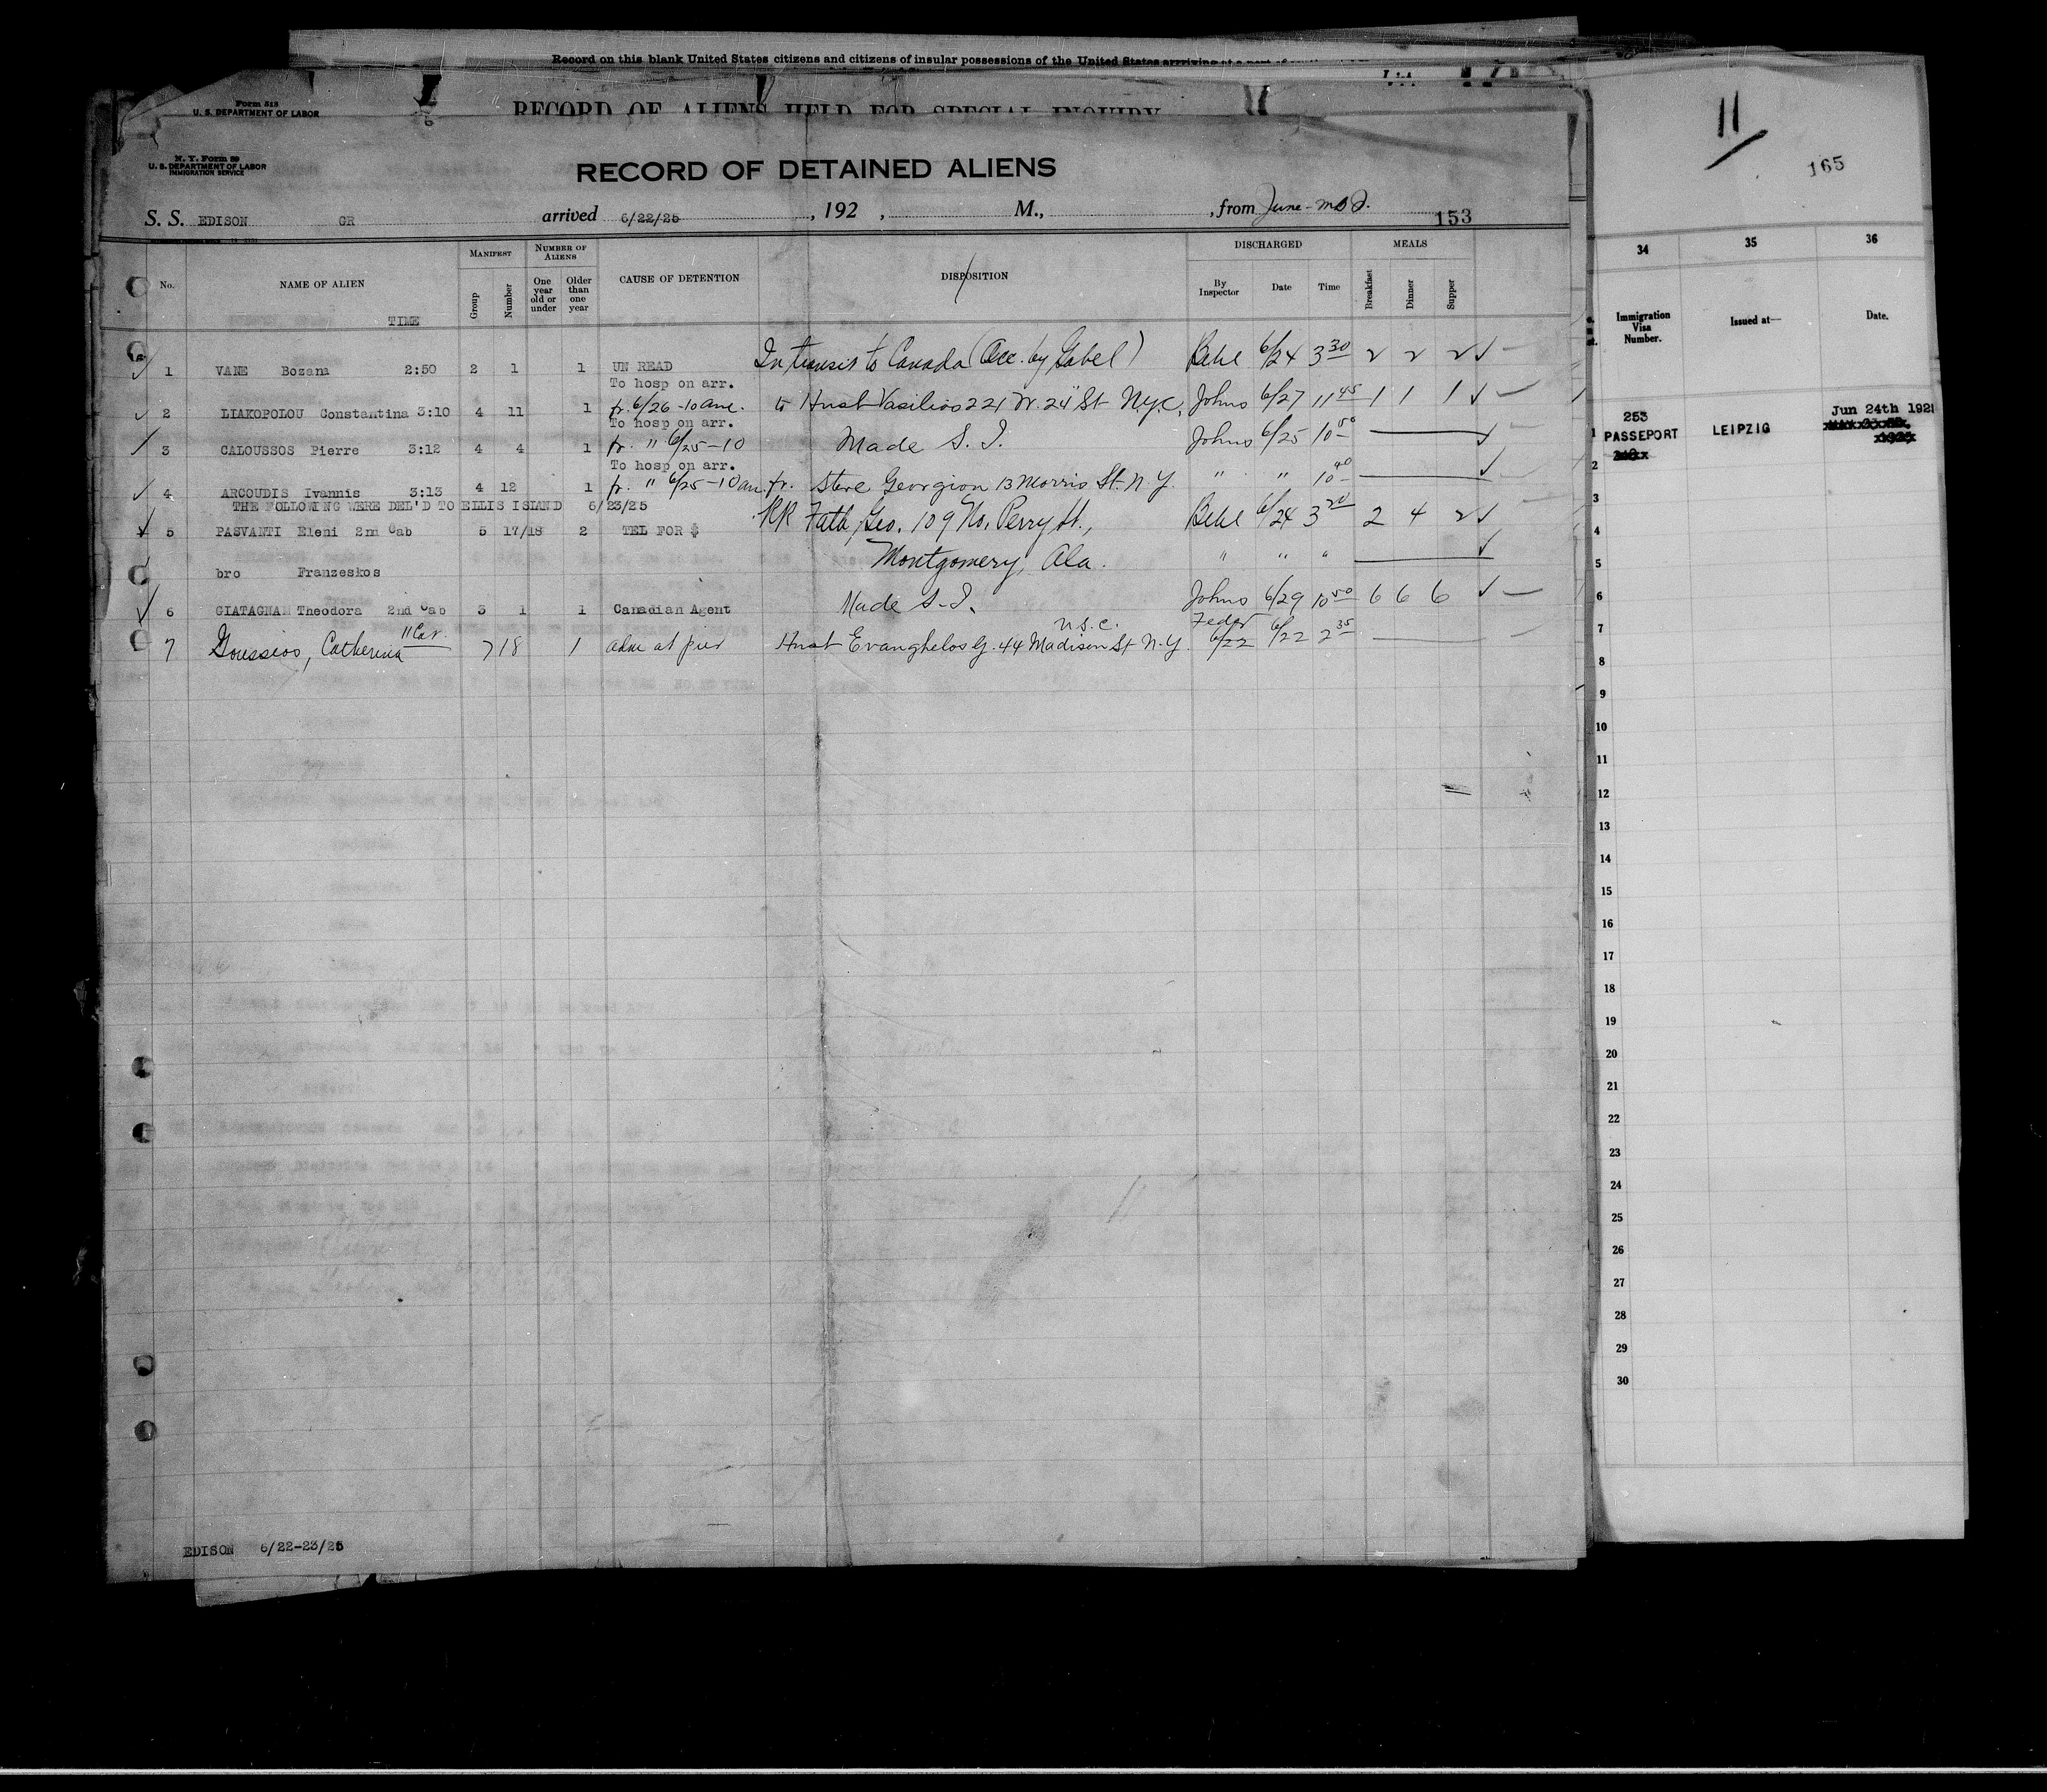 Record on this blank United States citizens and citizens of insular possessions of the United States arriving at a port of
Form 513
U. S. DEPARTMENT OF LABOR
RECORD OF ALIENS HELD FOR SPECIAL INQUIRY
N. Y. Form 99
U. S. DEPARTMENT OF LABOR
IMMIGRATION SERVICE
RECORD OF DETAINED ALIENS
S. S. EDISON GR arrived 6/22/25, 192 , M., , from June 153
No. NAME OF ALIEN TIME MANIFEST Group Number NUMBER OF ALIENS One year old or under Older than one year CAUSE OF DETENTION DISPOSITION DISCHARGED By Inspector Date Time MEALS Breakfast Dinner Supper
1 VANE Bozana 2:50 2 1 1 UN READ In transit to Canada (Acc. by Gabel) Behl 6/24 3 30 2 2 2 ✓
To hosp on arr.
2 LIAKOPOLOU Constantina 3:10 4 11 1 fr. 6/26-10 am. to Husb Vasilios 221 W. 24" St N.Y.C, Johns 6/27 11 45 1 1 1 ✓
To hosp on arr.
3 CALOUSSOS Pierre 3:12 4 4 1 fr. " 6/25-10 Made S. I. Johns 6/25 10 50 ✓
To hosp on arr.
4 ARCOUDIS Ivannis 3:13 4 12 1 fr. " 6/25-10 am fr. Steve Georgion 13 Morris St. N.Y. " " 10 40 ✓
THE FOLLOWING WERE DEL'D TO ELLIS ISLAND 6/23/25
5 PASVANTI Eleni 2nd Cab 5 17/18 2 TEL FOR $ RR Fath, Geo. 109 No. Perry St., Behl 6/24 3 20 2 4 2 ✓
Montgomery, Ala. " " " ✓
bro Franzeskos
6 GIATAGNAM Theodora 2nd Cab 3 1 1 Canadian Agent Made S. I. Johns 6/29 10 50 6 6 6 ✓
7 Goussios, Catherina " Cab. 7 18 1 adm at pier Husb Evanghelos G. 44 Madison St N.Y. U.S.C. Feder 6/22 6/22 2 35
EDISON 6/22-23/25
11
165
34 35 36
Immigration Visa Number. Issued at— Date.
253 PASSEPORT LEIPZIG Jun 24th 192
1
2
3
4
5
6
7
8
9
10
11
12
13
14
15
16
17
18
19
20
21
22
23
24
25
26
27
28
29
30